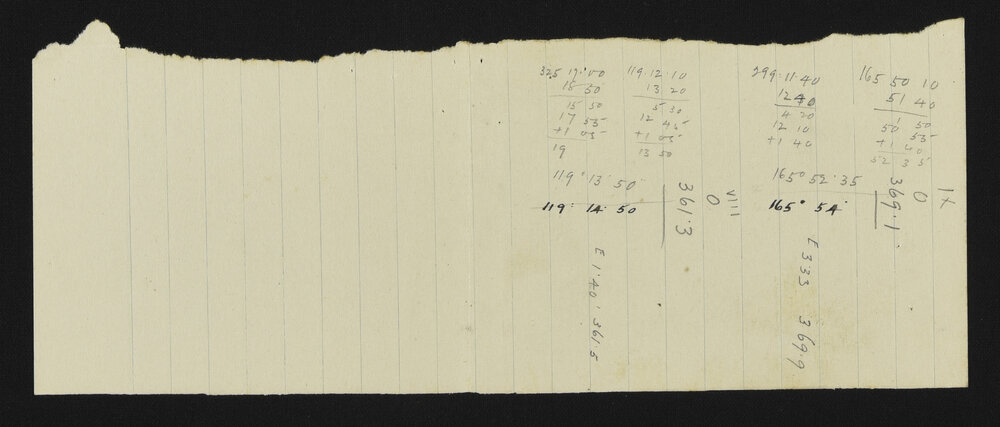 325 17 00
15 50
15 50
17 55
+1 05
19
119·12·10
13 20
5 30
12 45
+1 05
13 50
119° 13' 50"
119° 14' 50
361·3
VIII
0
E 1·40' 361·5
299·11·40
12 40
4 20
12 10
+1 40
165 50 10
51 40
1 50
50 55
+1 40
52 35
165° 52·35
165° 54'
369·1
IX
0
E 333 369·9